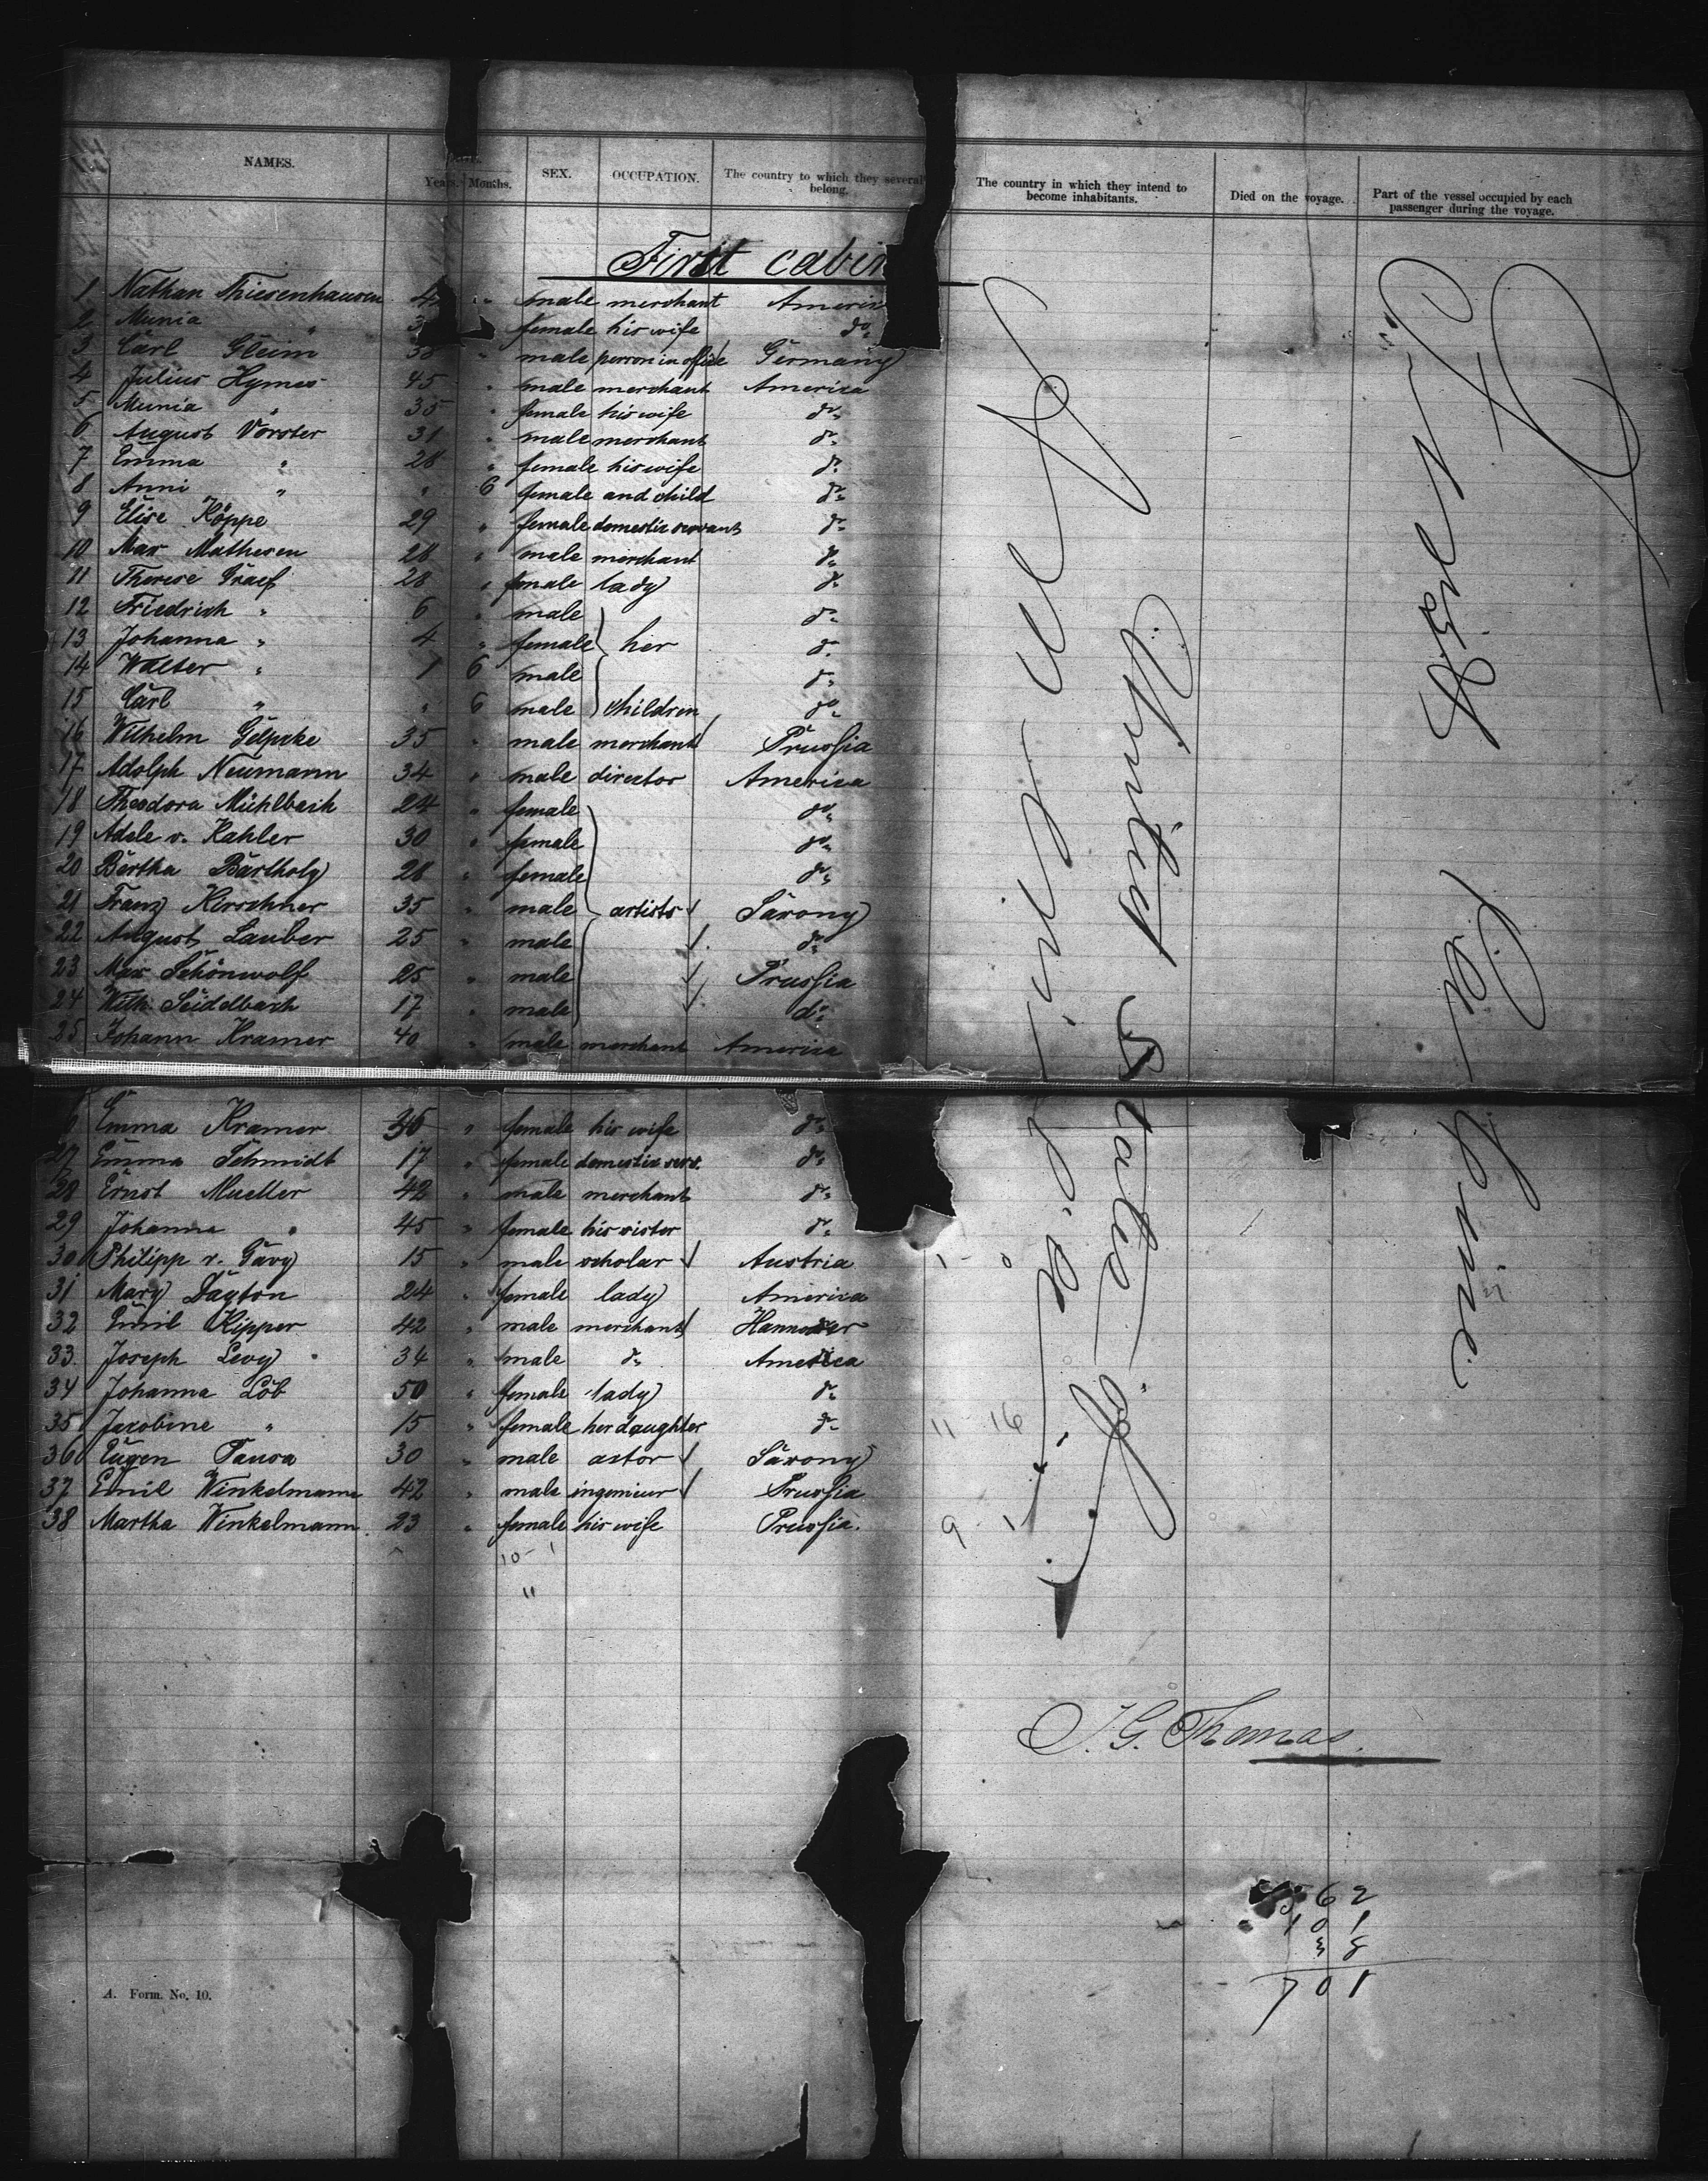 NAMES.
Years. Months.
SEX.
OCCUPATION.
The country to which they several
belong.
The country in which they intend to
become inhabitants.
Died on the voyage.
Part of the vessel occupied by each
passenger during the voyage.
First cabin
1 Nathan Thiesenhausen 4 " male merchant Americ
2 Munia " 3 female his wife do.
3 Carl Gleim 38 " male person in office Germany
4 Julius Hymes 45 " male merchant America
5 Munia " 35 " female his wife do.
6 August Vorster 31 " male merchant do.
7 Emma " 28 " female his wife do.
8 Anni " " 6 female and child do.
9 Elise Köppe 29 " female domestic servant do.
10 Max Mathesen 28 " male merchant do.
11 Therese Graef 28 " female lady do.
12 Friedrich " 6 " male do.
13 Johanna " 4 " female her do.
14 Walter " 1 6 male do.
15 Carl " " 6 male children do.
16 Wilhelm Gelpcke 35 " male merchant Prussia
17 Adolph Neumann 34 " male director America
18 Theodora Mühlbach 24 " female do.
19 Adele v. Kahler 30 " female do.
20 Bertha Bartholy 28 " female do.
21 Franz Kirschner 35 " male artists Saxony
22 August Lauber 25 " male do.
23 Max Schönwolf 25 " male Prussia
24 Wilh. Seidelbach 17 " male do.
25 Johann Kramer 40 " male merchant America
6 Emma Kramer 36 " female his wife do.
27 Emma Schmidt 17 " female domestic serv. do.
28 Ernst Mueller 42 " male merchant do.
29 Johanna " 45 " female his sister do.
30 Philipp v. Gavy 15 " male scholar Austria
31 Mary Dayton 24 " female lady America
32 Emil Kipper 42 " male merchant Hannover
33. Joseph Levy 34 " male do. America
34 Johanna Löb 50 " female lady do.
35 Jacobine " 15 " female her daughter do.
36 Eugen Pausa 30 " male actor Saxony
37 Emil Winkelmann 42 " male ingenieur Prussia
38 Martha Winkelmann. 23 " female his wife Prussia.
10 - 1
11
11 - 16
9 - 1
United States of
J. G. Thomas.
562
101
38
701
A. Form. No. 10.